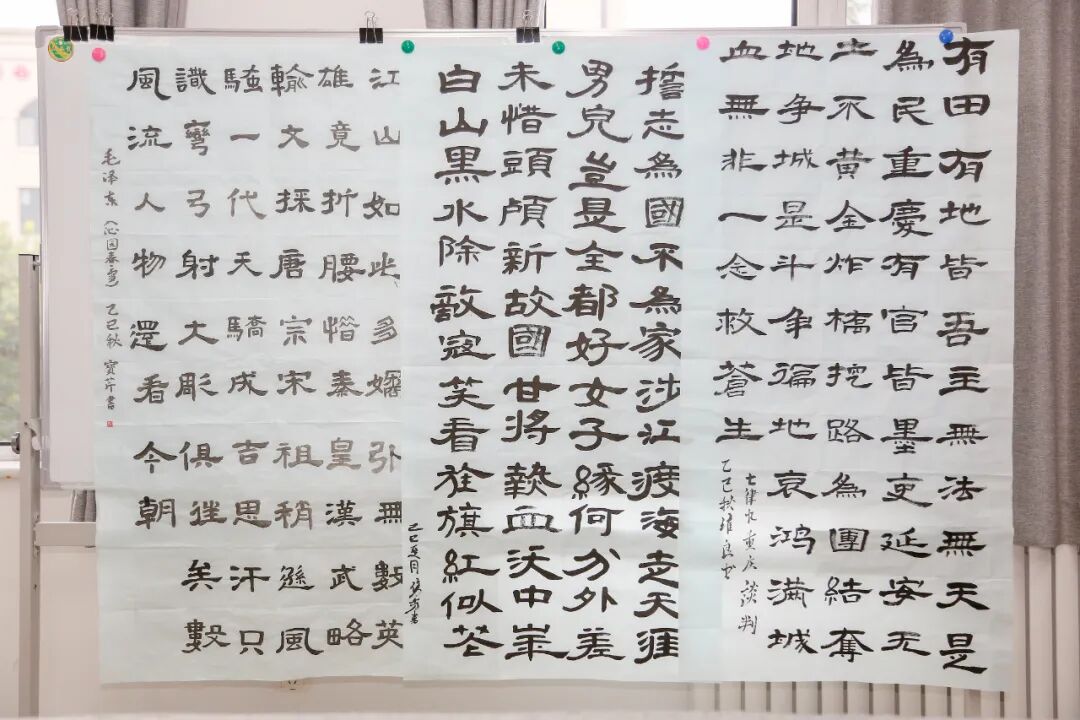 有田有地皆吾主無法無天是
為民重慶有官皆墨吏延安无
土不黃金炸橋挖路為團結奪
地争城是斗争徧地哀鸿滿城
血無非一念救蒼生
七律 重庆談判
乙巳秋
誓志為國不為家涉江渡海走天涯
男兒豈是全都好女子緣何分外差
未惜頭顱新故國甘將熱血沃中華
白山黑水除敵寇笑看旌旗紅似花
乙巳夏月
江山如此多嬌引無數英
雄竟折腰惜秦皇漢武略
輸文採唐宗宋祖稍遜風
騷一代天驕成吉思汗只
識彎弓射大彫俱往矣數
風流人物還看今朝
毛泽东《沁园春雪》乙巳秋 寶芹書